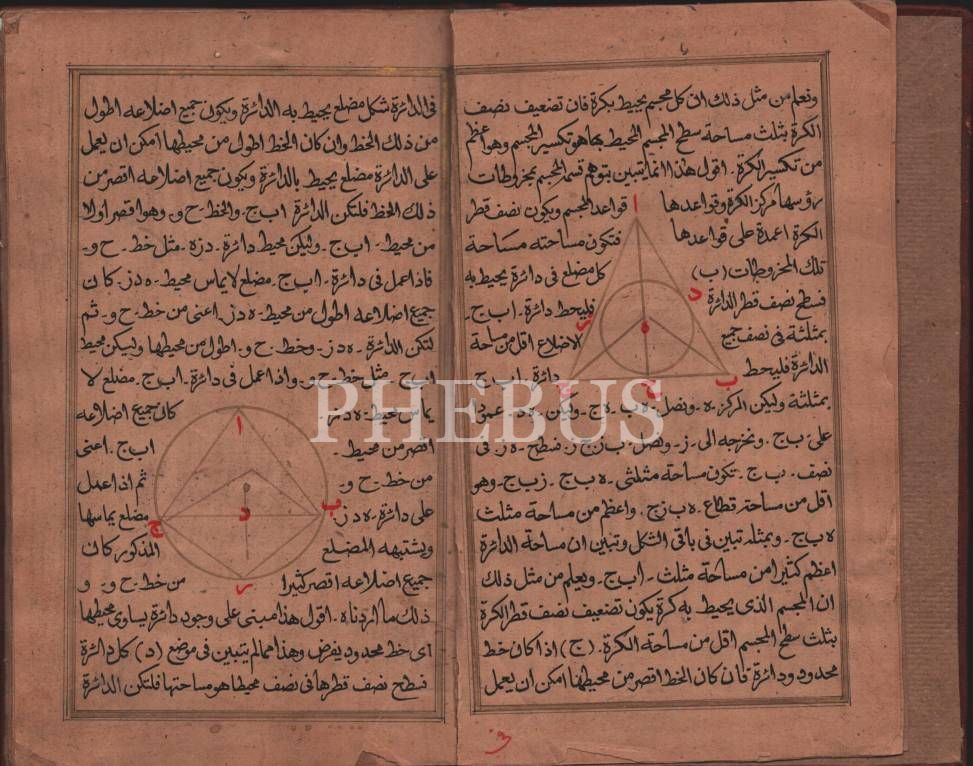 ونعلم من مثل ذلك ان كل مجسم يحيط بكرة فان تضعيف نصف
الكرة بثلث مساحة سطح المجسم المحيط بها هو تكسير المجسم وهو اعظم
من تكسير الكرة . اقول هذا انما تبين بتوهم قسمة المجسم بمخروطات
رؤسها مركز الكرة وقواعدها قواعد المجسم ويكون نصف قطر
الكرة اعمدة على قواعدها فتكون مساحته مساحة
تلك المخروطات (ب) كل مضلع فى دائرة يحيط به
فسطح نصف قطر الدائرة فليحط دائرة . ا ب ج .
بمثلثة فى نصف جميع الاضلاع اقل من مساحة
الدائرة فليحط دائرة . ا ب ج
بمثلثة وليكن المركز . ه . ونصل . ه ب . ه ج . وليكن . ه د . عمودا
على . ب ج . ونخرجه الى . ز . ونصل . ب ز ج ز . فسطح . ه ز . فى
نصف . ب ج . تكون مساحة مثلثى . ه ب ج . ز ب ج . وهو
اقل من مساحة قطاع . ه ب ز ج . واعظم من مساحة مثلث
ه ب ج . وبمثله تبين فى باقى الشكل وتبين ان مساحة الدائرة
اعظم كثيرا من مساحة مثلث . ا ب ج . ويعلم من مثل ذلك
ان المجسم الذى يحيط به كرة يكون تضعيف نصف قطر الكرة
بثلث سطح المجسم اقل من مساحة الكرة . (ج) اذا كان خط
محدود ودائرة فان كان الخط اقصر من محيطها امكن ان يعمل
ا
د
ه
ب
ح
ج
فى الدائرة شكل مضلع يحيط به الدائرة ويكون جميع اضلاعه اطول
من ذلك الخط وان كان الخط اطول من محيطها امكن ان يعمل
على الدائرة مضلع يحيط بالدائرة ويكون جميع اضلاعه اقصر من
ذلك الخط فلتكن الدائرة ا ب ج . والخط . ح و . وهو اقصر اولا
من محيط . ا ب ج . وليكن محيط دائرة . د ز ه . مثل خط . ح و .
فاذا عمل فى دائرة . ا ب ج . مضلع لا يماس محيط . ه د ز . كان
جميع اضلاعه اطول من محيط . ه د ز . اعنى من خط . ح و . ثم
لتكن الدائرة . ه د ز . وخط . ح و . اطول من محيطها وليكن محيط
ا ب ج . مثل خط . ح و . واذا عمل فى دائرة . ا ب ج . مضلع لا
يماس محيط . ه د ز كان جميع اضلاعه
اقصر من محيط . ا ب ج . اعنى
من خط . ح و . ثم اذا عمل
على دائرة . ه د ز مضلع يماسها
ويشتبهه المضلع المذكور كان
جميع اضلاعه اقصر كثيرا من خط . ح و . و
ذلك ما اردناه . اقول هذا مبنى على وجود دائرة يساوى محيطها
اى خط محدود يفرض وهذا مما لم يتبين فى موضع (د) كل دائرة
فسطح نصف قطرها فى نصف محيطها هو مساحتها فلتكن الدائرة
ا
ب
د
ج
ر
PHEBUS